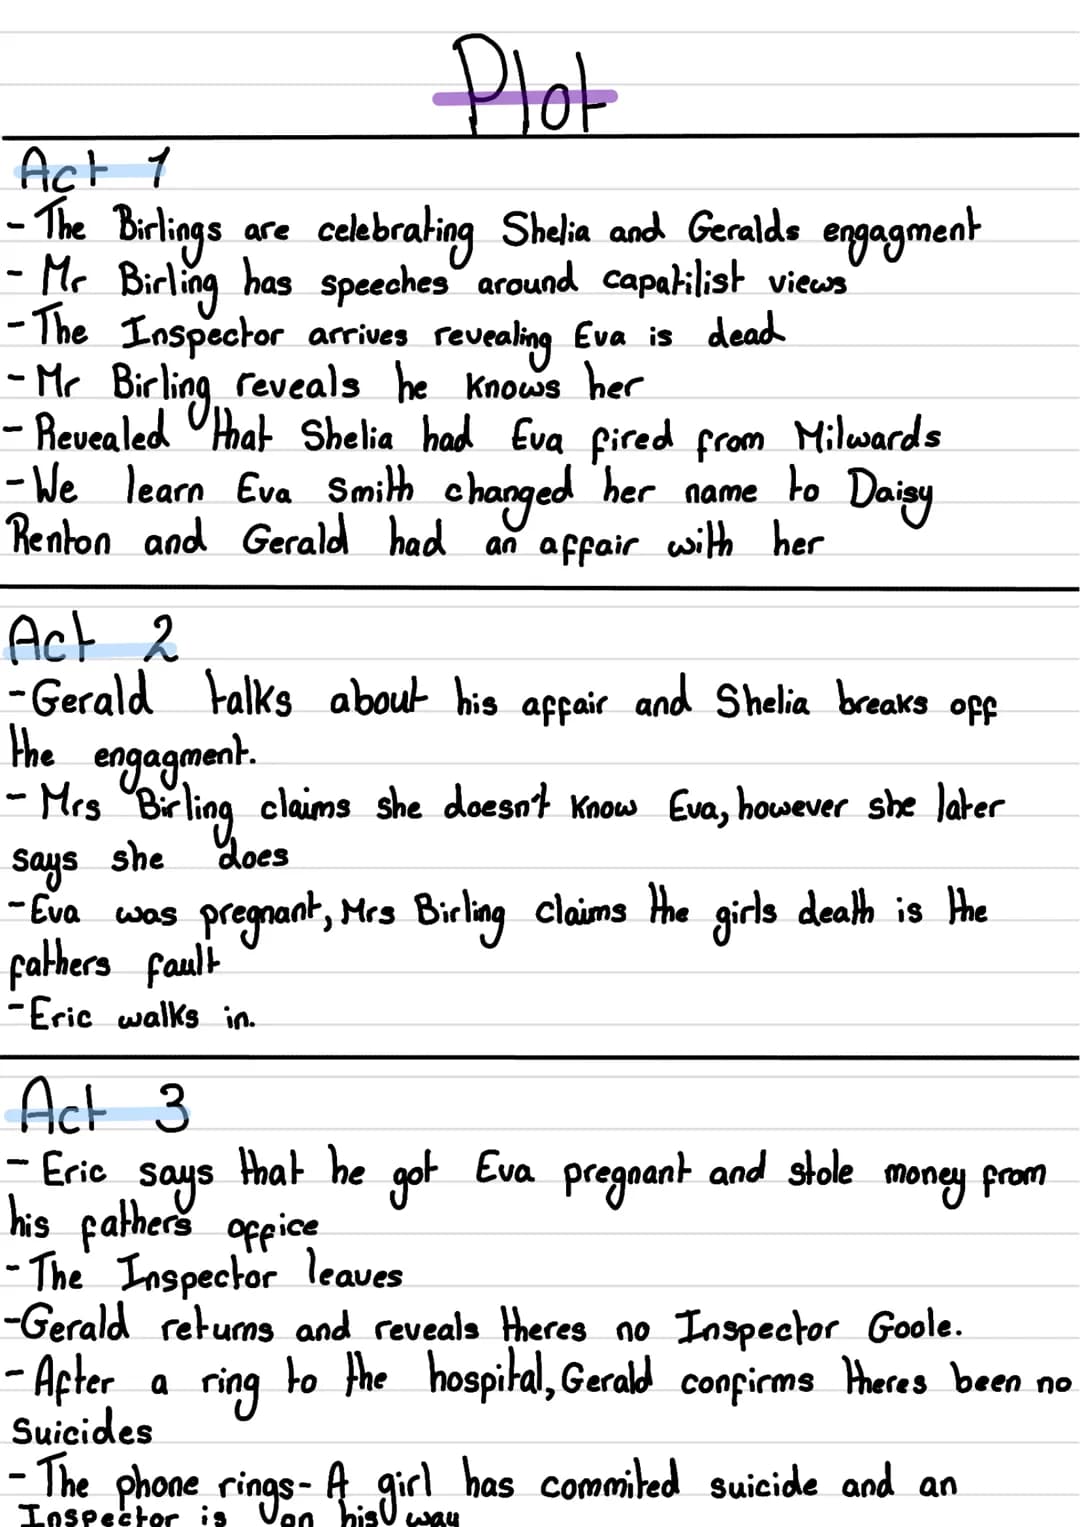 Plot
Act 1
- The Birlings are celebrating Shelia and Geralds engagment
- Mr Birling has speeches around capatilist views
- The Inspector arrives revealing Eva is dead
- Mr Birling reveals he knows her
- Revealed that Shelia had Eva fired from Milwards
- We learn Eva Smith changed her name to Daisy
Renton and Gerald had an affair with her
Act 2
- Gerald talks about his affair and Shelia breaks off
the engagment.
- Mrs Birling claims she doesn't know Eva, however she later
says she does
- Eva was pregnant, Mrs Birling claims the girls death is the
fathers fault
- Eric walks in.
Act 3
- Eric says that he got Eva pregnant and stole money from
his father's office
- The Inspector leaves
- Gerald returns and reveals theres no Inspector Goole.
- After a ring to the hospital, Gerald confirms theres been no
Suicides
- The phone rings - A girl has commited suicide and an
Inspector is on his way